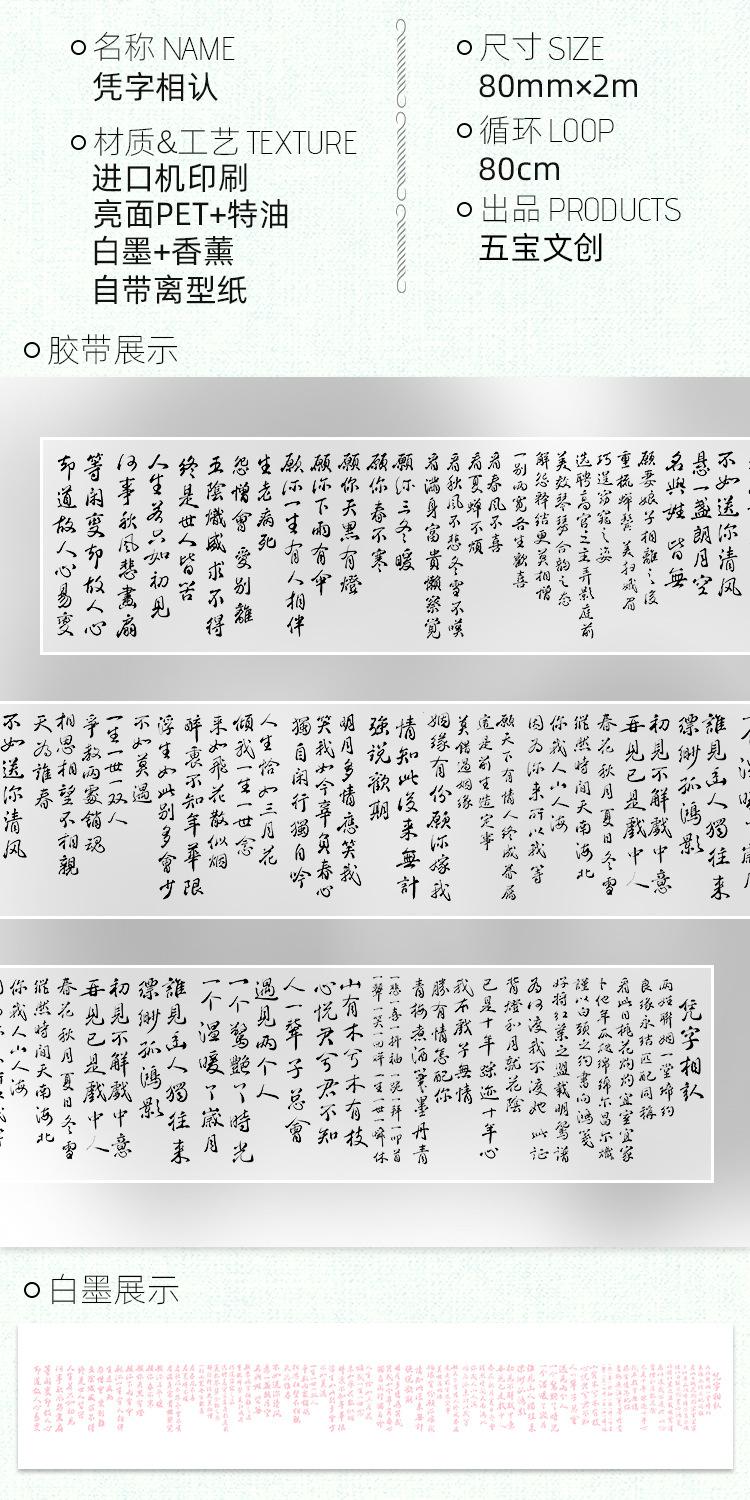 名称 NAME
凭字相认
材质&工艺 TEXTURE
进口机印刷
亮面PET+特油
白墨+香薰
自带离型纸
尺寸 SIZE
80mm×2m
循环 LOOP
80cm
出品 PRODUCTS
五宝文创
胶带展示
不如送你清风
悬一盏朗月空
名與姓 皆無
願妻娘子相離之後
重梳蟬鬢 美扫娥眉
巧逞窈窕之姿
選聘高官之主 弄影庭前
美效琴瑟合韵之态
解怨釋結 更莫相憎
一别兩寬 各生歡喜
看春风不喜
看夏蟬不煩
看秋风不悲 冬雪不嘆
看满身富貴懶察覺
願你三冬暖
願你春不寒
願你天黑有燈
願你下雨有傘
願你一生有人相伴
生老病死
怨憎會 愛别離
五陰熾盛 求不得
終是世人皆苦
人生若只如初見
何事秋风悲畫扇
等闲變却故人心
却道故人心易變
誰見幽人獨往来
缥缈孤鴻影
初見不解戲中意
再見已是戲中人
春花秋月夏日冬雪
縱然時间天南海北
你我人山人海
因为你来所以我等
願天下有情人终成眷属
這是前生造定事
莫錯過姻缘
姻缘有份願你嫁我
情知此後来無計
強说歡期
明月多情應笑我
笑我如今辜負春心
獨自闲行獨自吟
人生恰如三月花
傾我一生一世念
来如飛花散似烟
醉裏不知年華限
浮生如此别多會少
不如莫遇
一生一世一双人
争教兩處銷魂
相思相望不相親
天为誰春
不如送你清风
凭字相認
两姓聯姻一堂缔约
良缘永结匹配同稱
看此日桃花灼灼宜室宜家
卜他年瓜瓞绵绵尔昌尔熾
謹以白頭之约書向鴻笺
好将红葉之盟載明鴛谱
为何渡我不渡她 此证
背燈和月就花陰
已是十年踪迹十年心
我本戏子無情
勝有情怎配你
青梅煮酒 筆墨丹青
一悲一喜一抖袖 一跪一拜一叩首
一颦一笑一回眸 一生一世一瞬休
山有木兮木有枝
心悦君兮君不知
人一辈子总會
遇見两个人
一个驚艷了時光
一个温暖了歲月
誰見幽人獨往来
缥缈孤鴻影
初見不解戲中意
再見已是戲中人
春花秋月夏日冬雪
縱然時间天南海北
你我人山人海
白墨展示